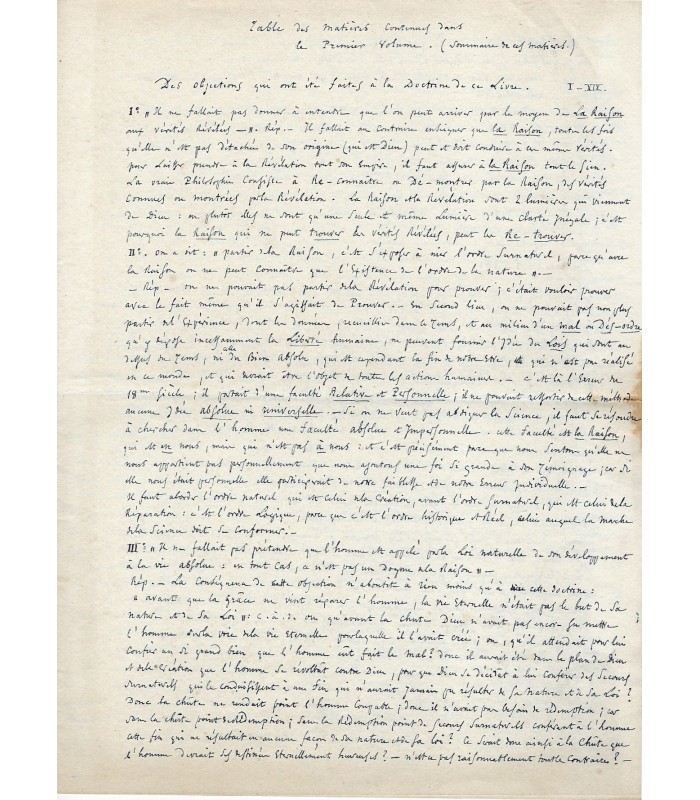 Table des matières contenues dans
le Premier Volume. (Sommaire de ces matières.)
Des objections qui ont été faites à la Doctrine de ce Livre. I - XIX.
I° " Il ne fallait pas donner à entendre que l'on peut arriver par le moyen de La Raison
aux vérités Révélées — ". Rép. — Il fallait au contraire enseigner que la Raison, toutes les fois
qu'elle n'est pas détachée de son origine (qui est Dieu) peut et doit conduire à ces même vérités.
pour laisser prendre à la Révélation tout son Empire, il faut assurer à la Raison tout le sien.
La vraie Philosophie Consiste à Re-connaître ou Dé-montrer par la Raison, des vérités
Connues ou montrées par la Révélation. La Raison et la Révélation sont 2 lumières qui viennent
de Dieu : ou plutôt elles ne sont qu'une seule et même lumière d'une Clarté inégale ; c'est
pourquoi la Raison qui ne peut trouver les vérités Révélées, peut les Re-trouver.
II°. on a dit : " partir de la Raison, c'est s'exposer à nier l'ordre Surnaturel, parce qu'avec
la Raison on ne peut Connaître que l'Existence de l'ordre de la nature " —
— Rép — on ne pouvait pas partir de la Révélation pour prouver ; c'était vouloir prouver
avec le fait même qu'il s'agissait de Prouver. — En Second lieu, on ne pouvait pas non plus
partir de l'Expérience, dont les données, recueillies dans le Tems, et au milieu d'un mal ou Dés-ordre
qu'y dépose incessamment la Liberté humaine, ne peuvent fournir l'Idée des Lois qui sont au
dessus du Tems, ni celle du Bien absolu, qui est cependant la fin de notre Etre, qui n'est pas réalisé
en ce monde, et qui devrait être l'objet de toutes les actions humaines. — c'est là l'Erreur du
18me Siècle ; il partait d'une faculté Relative et Personnelle ; il ne pouvait ressortir de cette méthode
aucune Idée absolue ni universelle. — Si on ne veut pas abdiquer la Science, il faut se résoudre
à chercher dans l'homme une Faculté absolue et Impersonnelle. cette Faculté est la Raison,
qui est en nous, mais qui n'est pas à nous : et c'est précisément parce que nous Sentons qu'elle ne
nous appartient pas personnellement que nous ajoutons une foi si grande à son Témoignage ; car si
elle nous était personnelle elle participerait de notre faiblesse et de notre Erreur Individuelle. —
Il faut aborder l'ordre naturel qui est Celui de la Création, avant l'ordre Surnaturel, qui est Celui de la
Réparation : c'est l'ordre Logique, parce que c'est l'ordre historique et Réel, celui auquel la marche
de la Science doit se Conformer. —
III° " Il ne fallait pas prétendre que l'homme est appelé par la Loi naturelle de son développement
à la vie absolue : en tout Cas, ce n'est pas un Dogme de la Raison " —
Rép. — La Conséquence de cette objection n'aboutit à rien moins qu'à cette doctrine :
" avant que la Grâce ne vint réparer l'homme, la vie Eternelle n'était pas le but de Sa
nature et de Sa Loi " : c. à. d. ou qu'avant la chute Dieu n'avait pas encore su mettre
l'homme sur la voie de la vie Eternelle pour laquelle il l'avait créé ; ou, qu'il attendait pour lui
Conférer un si grand bien que l'homme eut fait le mal ? donc il aurait été dans le plan de Dieu
et de la Création que l'homme se révoltât contre Dieu, pour que Dieu se décidât à lui Conférer des Secours
Surnaturels qui le conduisissent à une Fin qui n'aurait jamais pu résulter de Sa Nature et de Sa Loi ?
Donc la chute ne rendait point l'homme Coupable ; donc il n'avait pas besoin de rédemption ; car
sans la chûte point de Rédemption ; Sans la Rédemption point de Secours Surnaturels conférant à l'homme
cette fin qui ne résultait en aucune façon de Sa nature et de Sa loi ? Ce Serait donc ainsi à la Chute que
l'homme devrait ses destinées Eternellement heureuses ? — n'est-ce pas raisonnablement tout le Contraire ? —